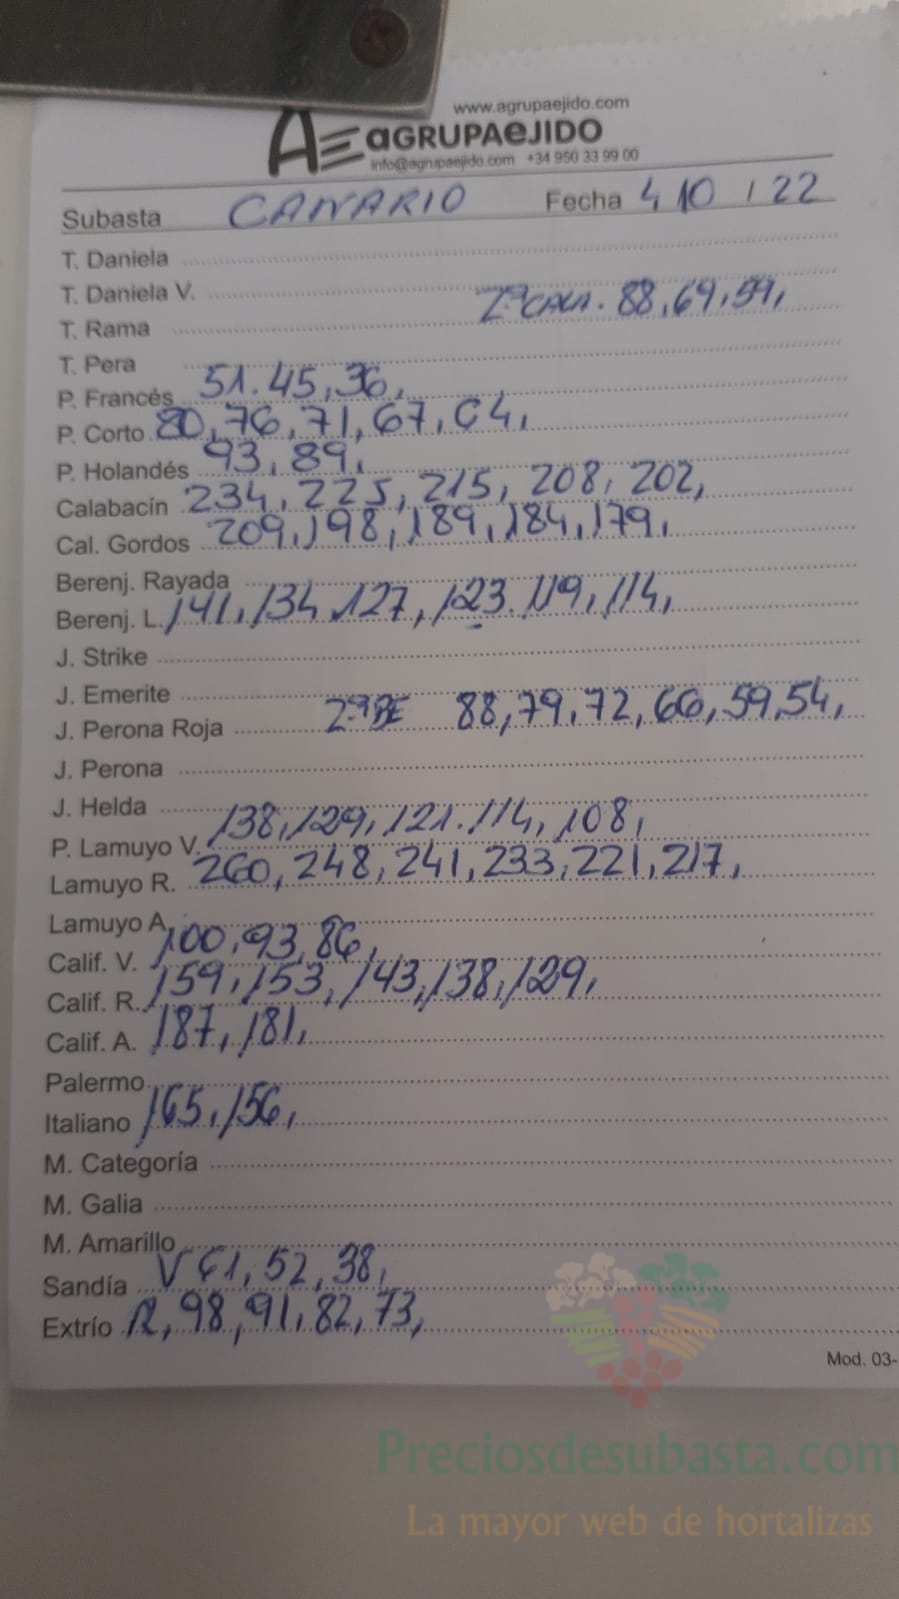 www.agrupaejido.com
AE aGRUPAeJIDO
info@agrupaejido.com +34 950 33 99 00
Subasta CANARIO Fecha 4 10 / 22
T. Daniela
T. Daniela V.
2ª CALA. 88, 69, 59,
T. Rama
T. Pera
P. Francés 51. 45, 36,
P. Corto 80, 76, 71, 67, 64,
P. Holandés 93, 89,
Calabacín 234, 225, 215, 208, 202,
Cal. Gordos 209, 198, 189, 184, 179,
Berenj. Rayada
Berenj. L. 141, 134, 127, 123. 119, 114,
J. Strike
J. Emerite
J. Perona Roja 2ª BE 88, 79, 72, 66, 59, 54,
J. Perona
J. Helda
P. Lamuyo V. 138, 129, 121. 114, 108,
Lamuyo R. 260, 248, 241, 233, 221, 217,
Lamuyo A.
Calif. V. 100, 93, 86,
Calif. R. 159, 153, 143, 138, 129,
Calif. A. 187, 181,
Palermo
Italiano 165, 156,
M. Categoría
M. Galia
M. Amarillo
Sandía V 61, 52, 38,
Extrío R, 98, 91, 82, 73,
Mod. 03-
Preciosdesubasta.com
La mayor web de hortalizas